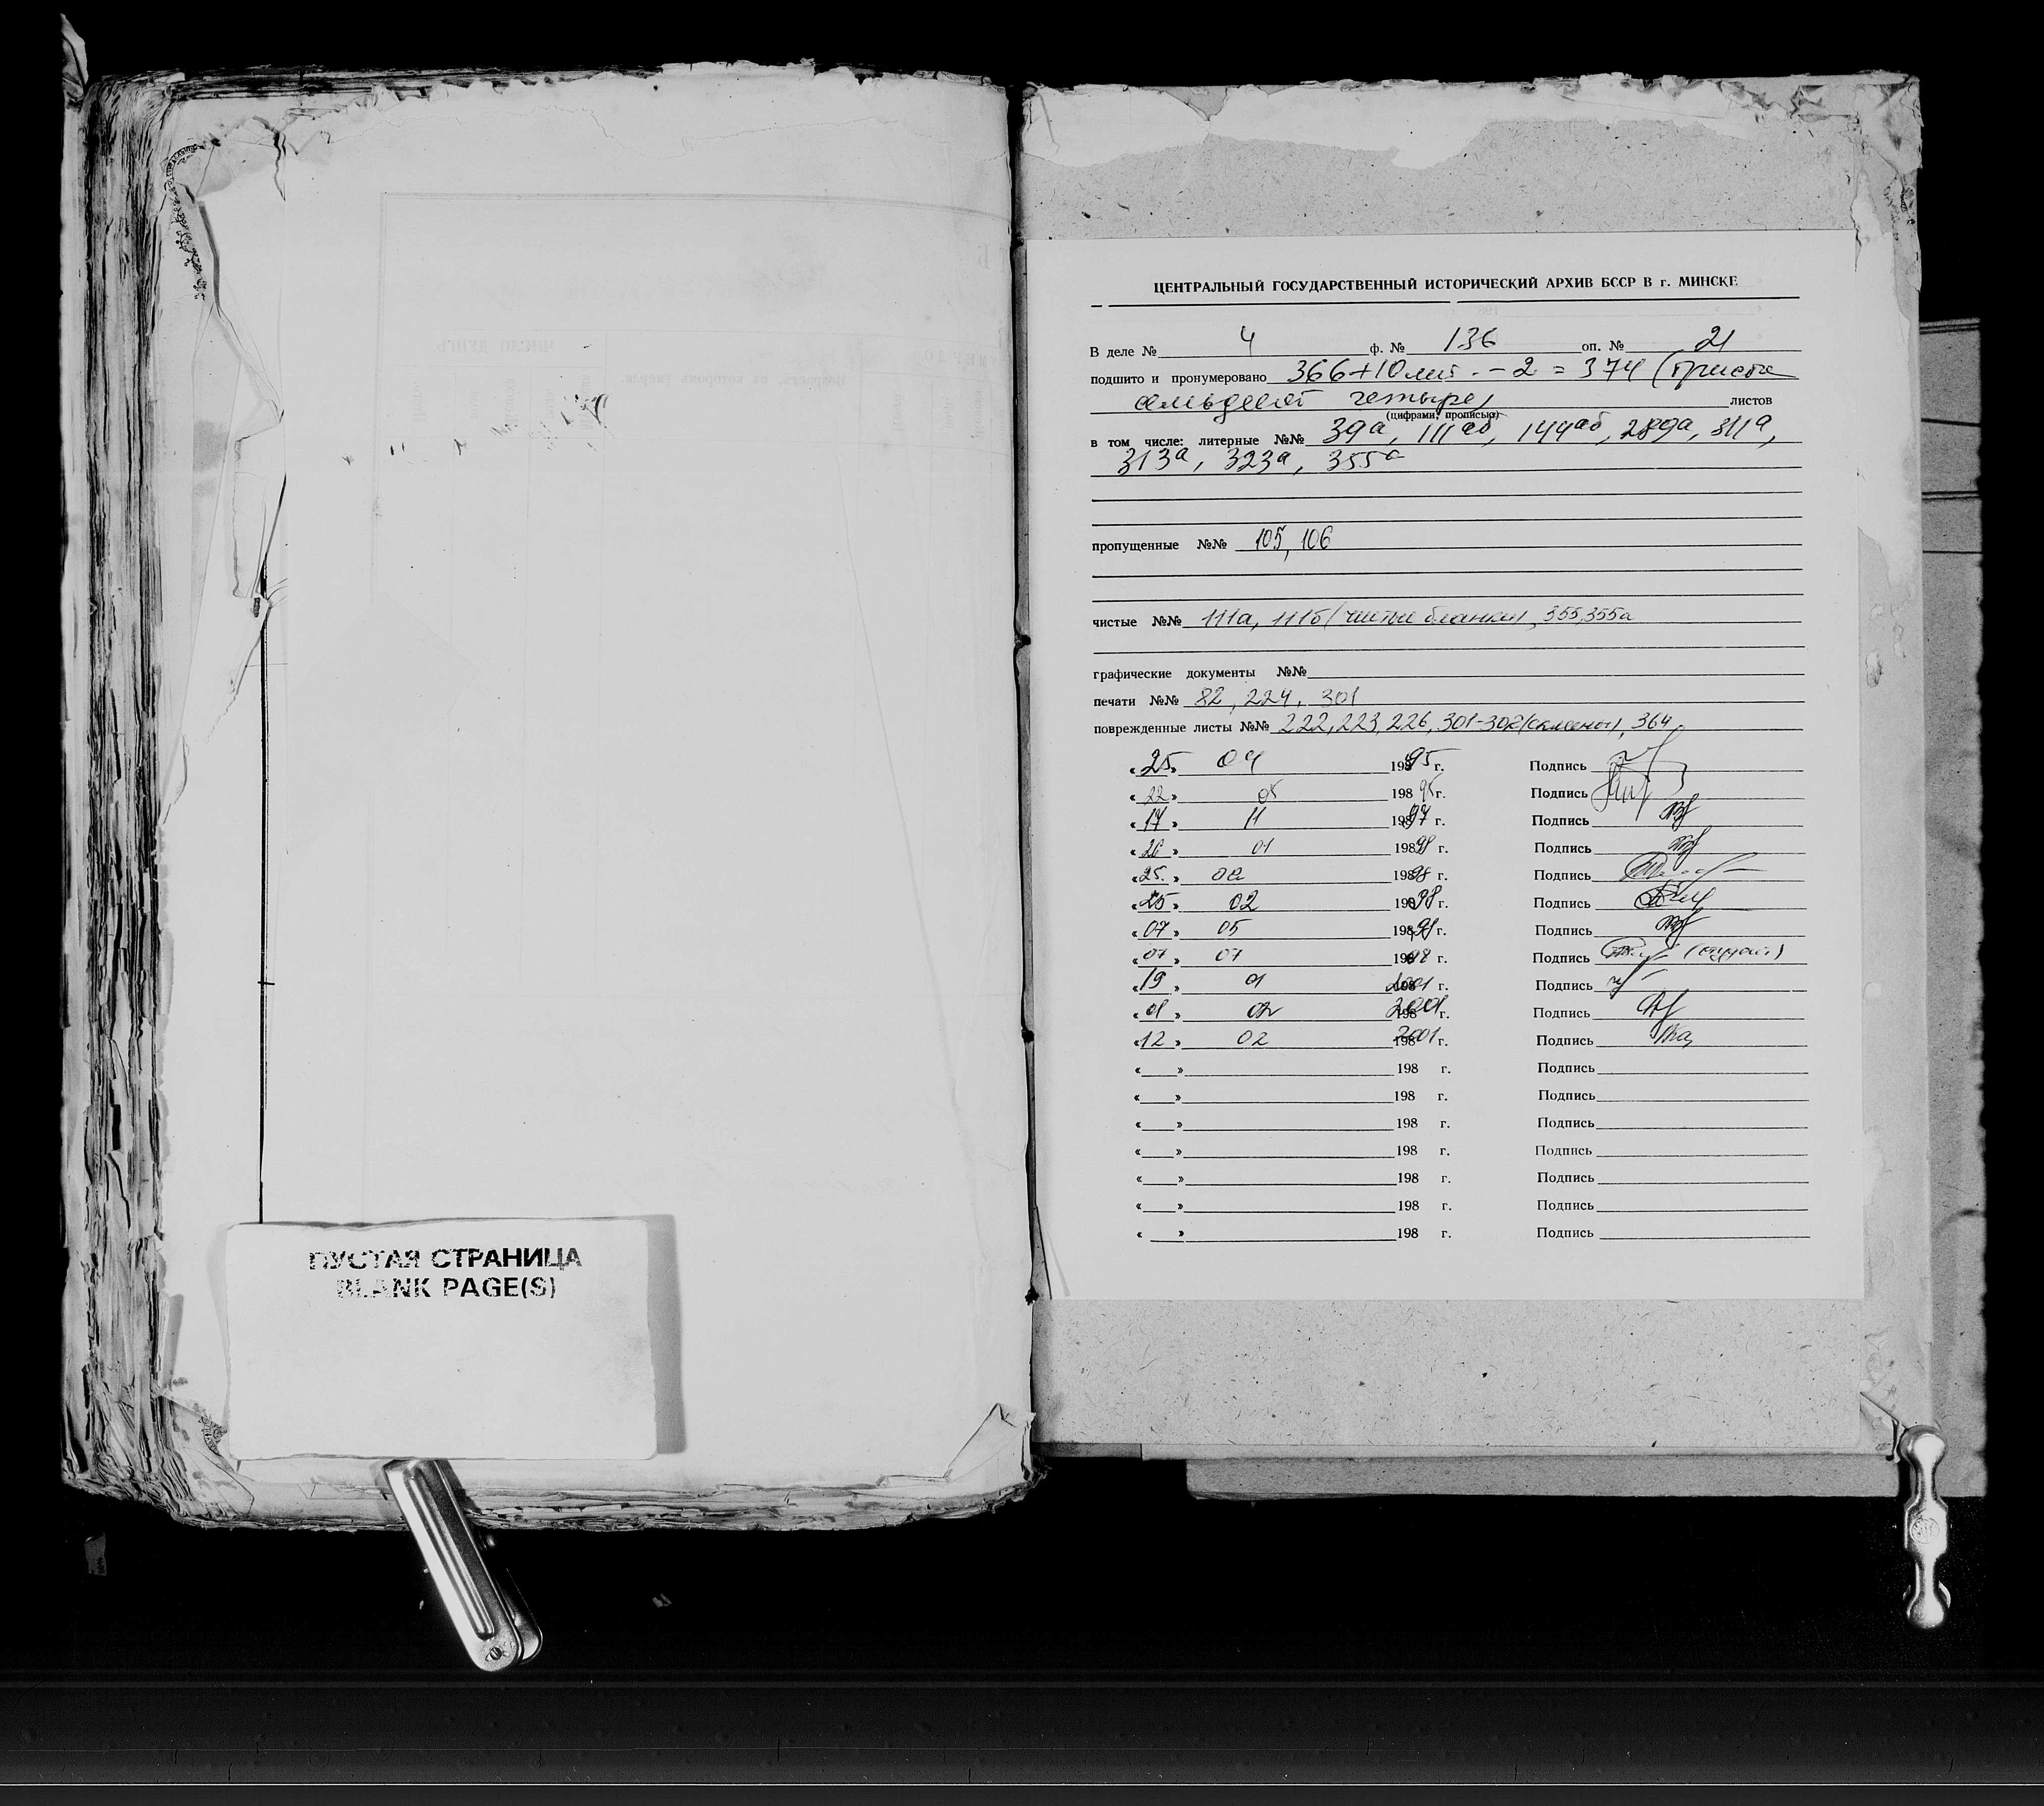 ЦЕНТРАЛЬНЫЙ ГОСУДАРСТВЕННЫЙ ИСТОРИЧЕСКИЙ АРХИВ БССР В г. МИНСКЕ
В деле № 4 ф. № 136 оп. № 21
подшито и пронумеровано 366+10 лит. - 2 = 374 (триста
семьдесят четыре) листов
(цифрами, прописью)
в том числе: литерные №№ 39а, 111аб, 144аб, 289а, 311а,
313а, 323а, 355а
пропущенные №№ 105, 106
чистые №№ 111а, 111б (чистые бланки), 355, 355а
графические документы №№
печати №№ 82, 224, 301
поврежденные листы №№ 222, 223, 226, 301-302 (склеены), 364
«25» 04 1995 г. Подпись
«22» 05 198 95 г. Подпись
«17» 11 198 97 г. Подпись
«26» 01 198 98 г. Подпись
«25» 02 198 98 г. Подпись
«25» 02 198 98 г. Подпись
«07» 05 198 98 г. Подпись
«07» 07 198 98 г. Подпись
«19» 01 2001 г. Подпись
«01» 02 2001 г. Подпись
«12» 02 2001 г. Подпись
« » 198 г. Подпись
« » 198 г. Подпись
« » 198 г. Подпись
« » 198 г. Подпись
« » 198 г. Подпись
« » 198 г. Подпись
« » 198 г. Подпись
ПУСТАЯ СТРАНИЦА
BLANK PAGE(S)